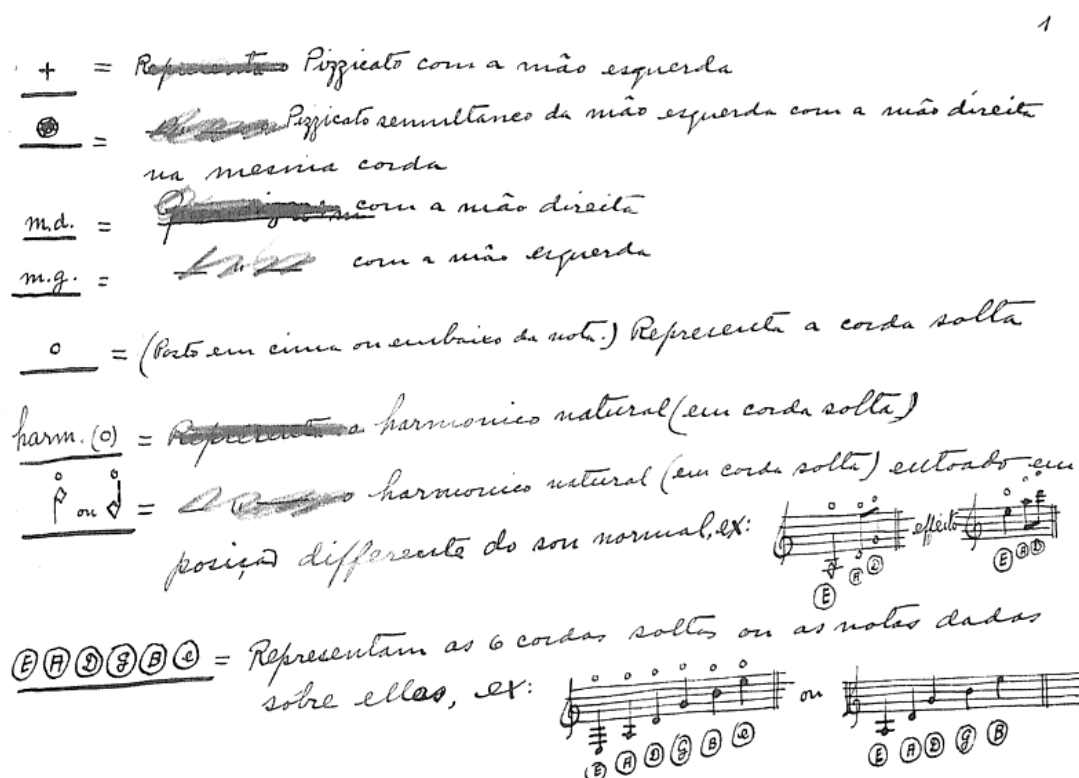 1
+ = Representa o Pizzicato com a mão esquerda
= Pizzicato semultaneo da mão esquerda com a mão direita
na mesma corda
m.d. = com a mão direita
m.g. = com a mão esquerda
o = (Posto em cima ou embaixo da nota.) Representa a corda solta
harm. (o) = Representa o harmonico natural (em corda solta)
ou = o harmonico natural (em corda solta) entoado em
posição differente do son normal, ex: effeito
E A D E A D
E A D G B e = Representam as 6 cordas soltas ou as notas dadas
sôbre ellas, ex: ou
E A D G B e E A D G B